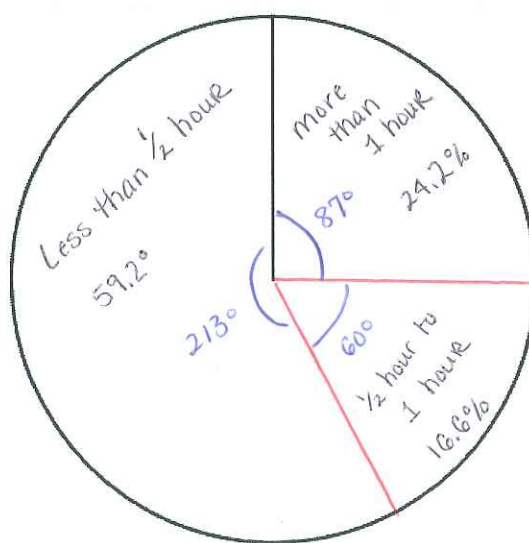 Less than ½ hour
59.2°
213°
more
than
1 hour
24.2%
87°
60°
½ hour to
1 hour
16.6%